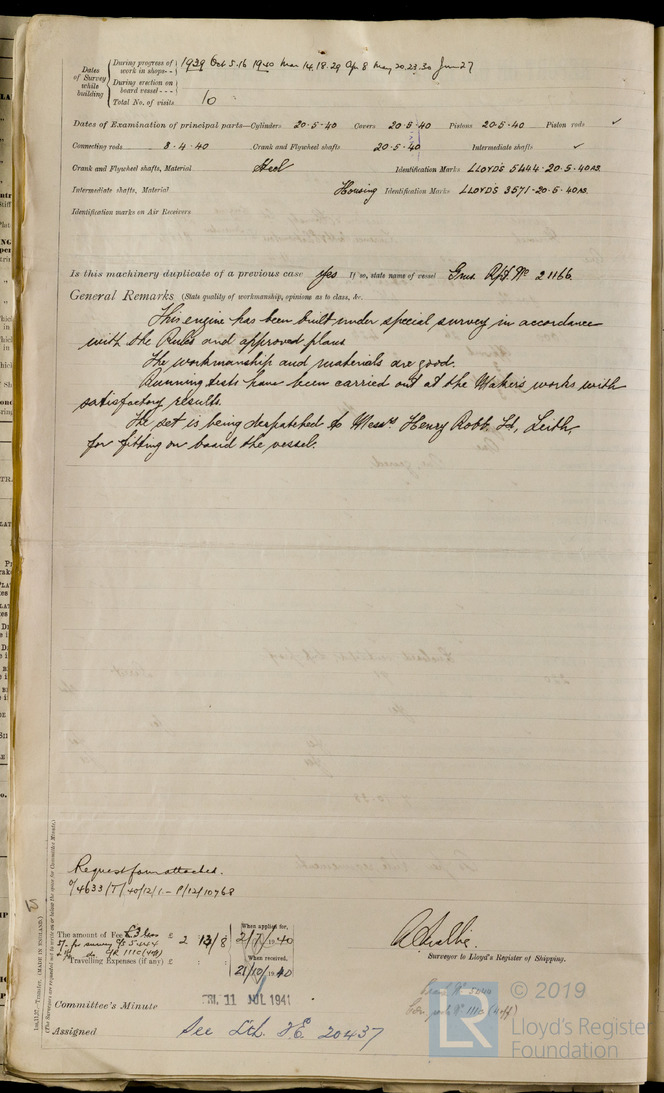 Dates of Survey while building
During progress of work in shops - - 1939 Oct 5.16 1940 Mar 14.18.29 Ap 8 May 20.23.30 Jun 27
During erection on board vessel - - -
Total No. of visits 10
Dates of Examination of principal parts—Cylinders 20.5.40 Covers 20.5.40 Pistons 20.5.40 Piston rods ✓
Connecting rods 8.4.40 Crank and Flywheel shafts 20.5.40 Intermediate shafts ✓
Crank and Flywheel shafts, Material Steel Identification Marks LLOYD'S 5444.20.5.40
Intermediate shafts, Material Housing Identification Marks LLOYD'S 3571.20.5.40
Identification marks on Air Receivers
Is this machinery duplicate of a previous case yes If so, state name of vessel Rpt No 21166
General Remarks (State quality of workmanship, opinions as to class, &c.
This engine has been built under special survey in accordance
with the Rules and approved plans
The workmanship and materials are good.
Running tests have been carried out at the Makers works with
satisfactory results.
The set is being despatched to Messrs Henry Robb Ld, Leith,
for fitting on board the vessel.
Request form attached.
O/4633/T/40/12/1 - P/12/10768
The amount of Fee £ 2 : 13/8
When applied for, 2/7/1940
for survey
Travelling Expenses (if any) £ :
When received, 21/10/1940
Surveyor to Lloyd's Register of Shipping.
Committee's Minute FRI. 11 JUL 1941
Assigned See Lth. F.E. 20437
1m,11,37.—Transfer. (MADE IN ENGLAND.)
(The Surveyors are requested not to write on or below the space for Committee's Minute.)
© 2019
LR
Lloyd's Register
Foundation